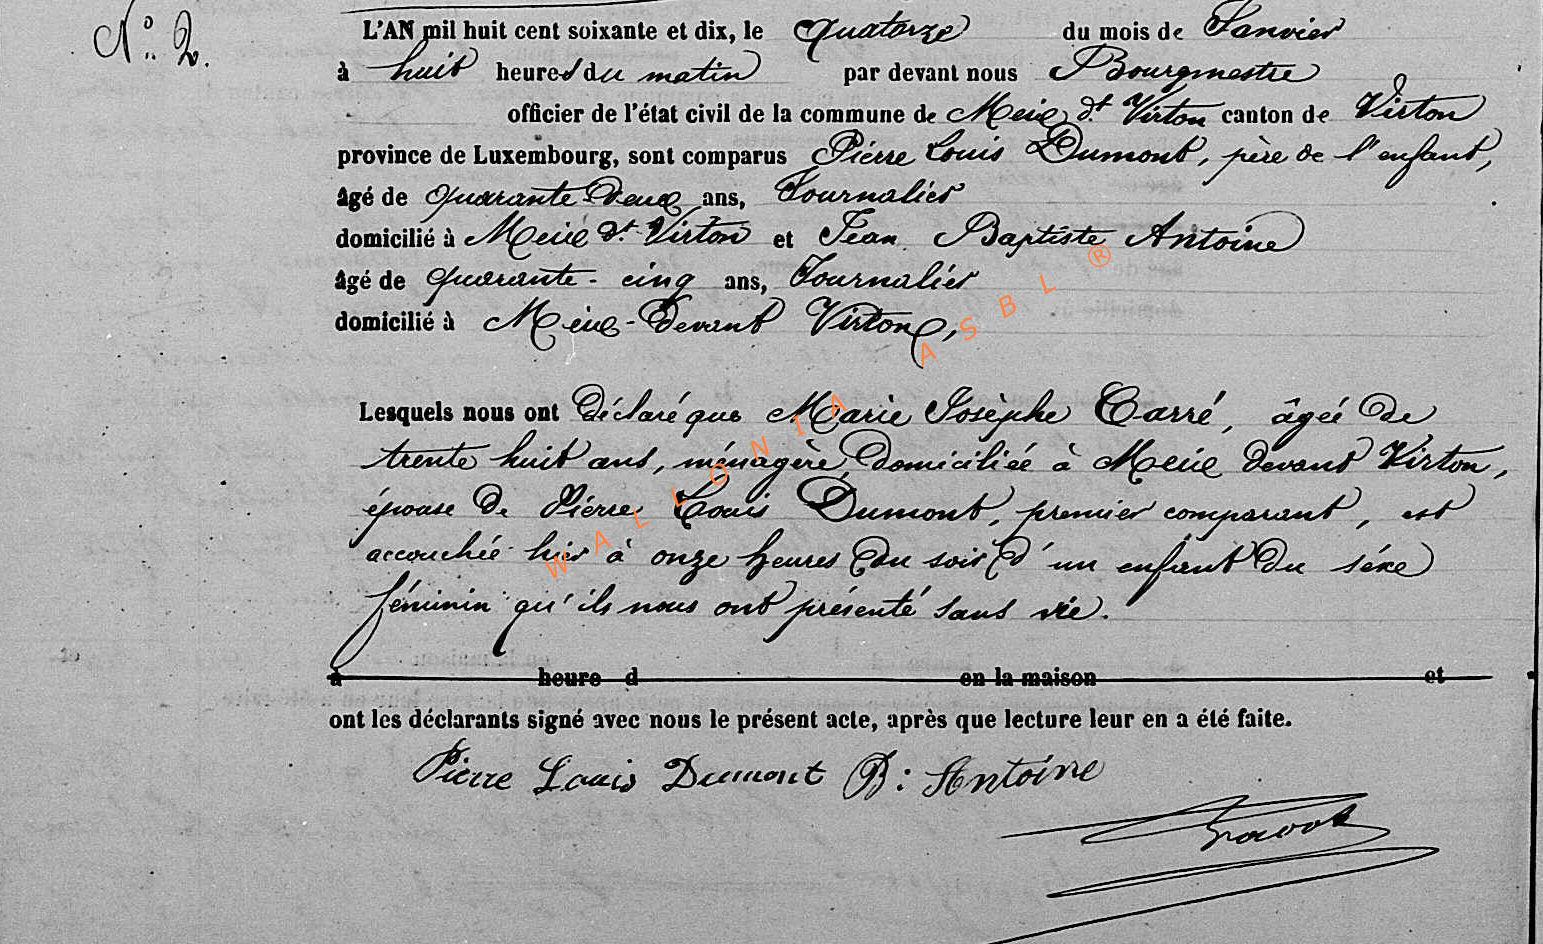 N° 2.
L'AN mil huit cent soixante et dix, le quatorze du mois de Janvier
à huit heures du matin par devant nous Bourgmestre
officier de l'état civil de la commune de Meix dt Virton canton de Virton
province de Luxembourg, sont comparus Piérre Louis Dumont, père de l'enfant,
âgé de quarante-deux ans, Journaliér
domicilié à Meix dt Virton et Jean Baptiste Antoine
âgé de quarante-cinq ans, Journaliér
domicilié à Meix-devant Virton,
Lesquels nous ont déclaré que Marie Josèphe Carré, âgée de
trente huit ans, ménagère, domiciliée à Meix devant Virton,
épouse de Piérre Louis Dumont, premier comparant, est
accouchée hier à onze heures du soir d'un enfant du séxe
féminin qu'ils nous ont présenté sans vie.
à heure d en la maison et
ont les déclarants signé avec nous le présent acte, après que lecture leur en a été faite.
Pierre Louis Dumont B: Antoine
WALLONIA ASBL ®